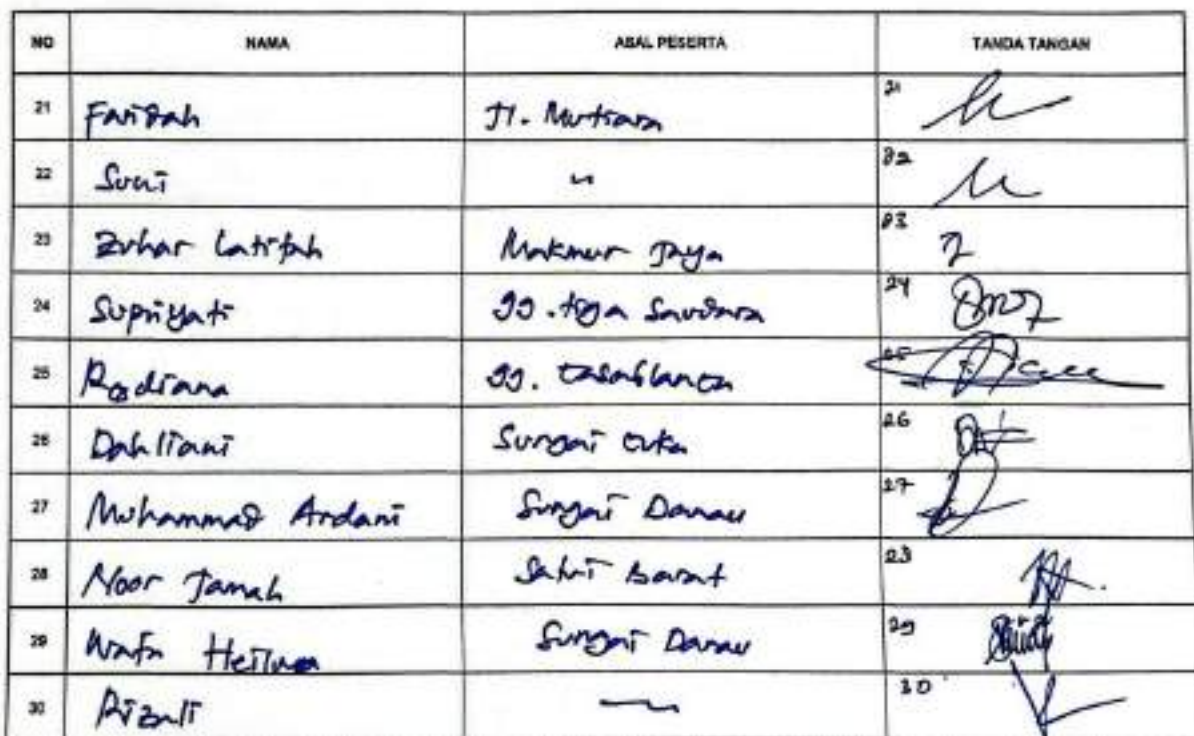 NO NAMA ASAL PESERTA TANDA TANGAN
21 Faridah Jl. Mutiara 21
22 Suci 〃 22
23 Zuhar Latifah Makmur Jaya 23
24 Supriyati gg. tiga Saudara 24
25 Rodiana gg. Casablanca 25
26 Dahliani Sungai Cuka 26
27 Muhammad Ardani Sungai Danau 27
28 Noor Janah Satui Barat 28
29 Wafa Sungai Danau 29
30 Rizali 30